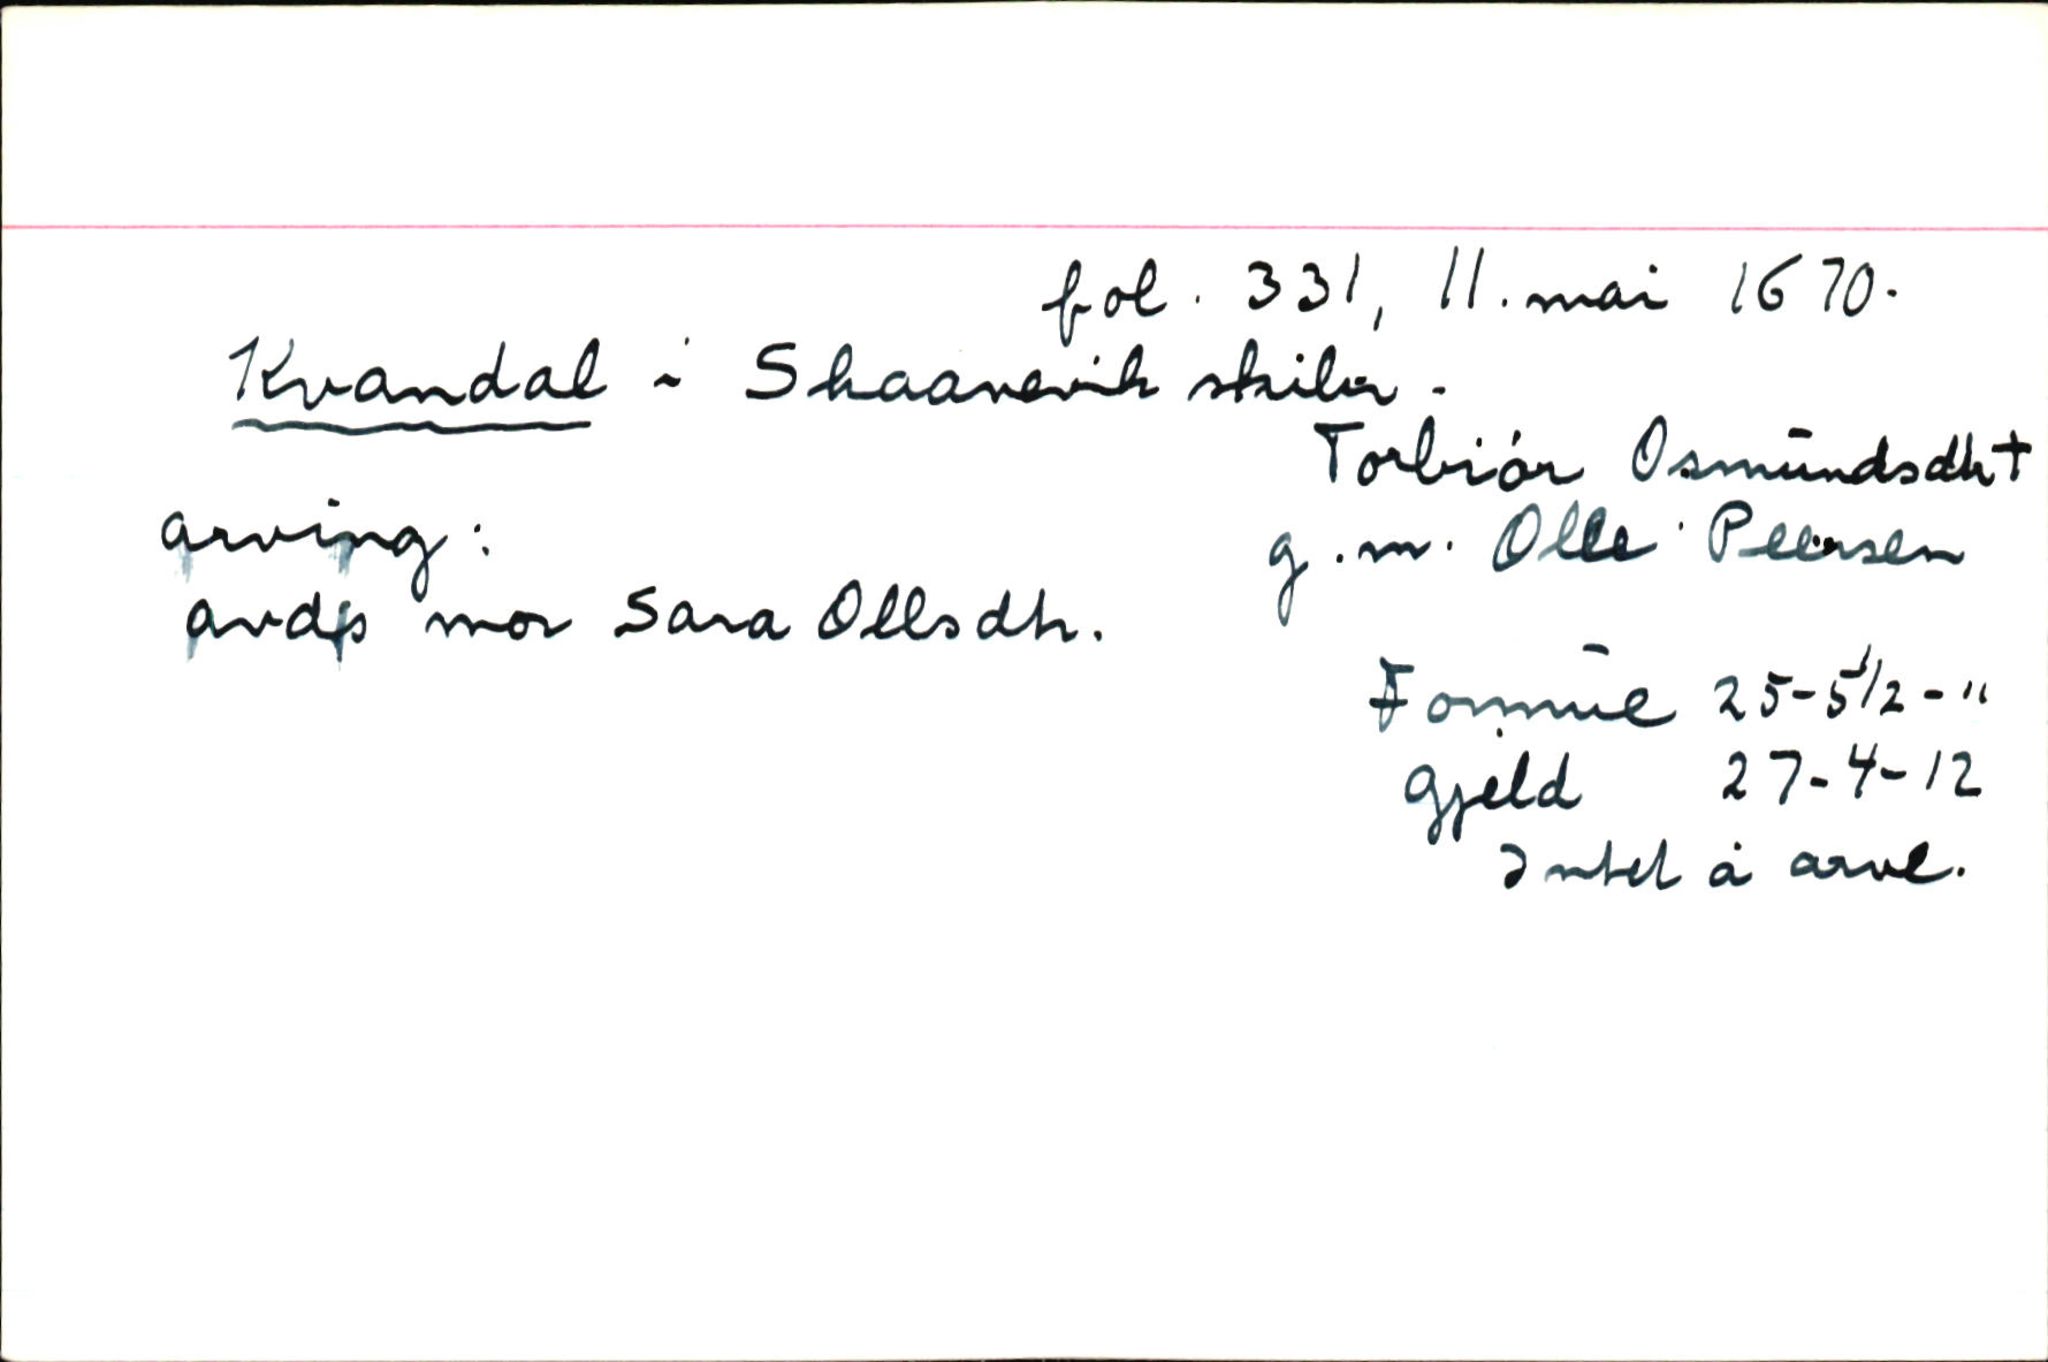 fol. 331, 11. mai 1670.
Kvandal i Skaanevik skibr.
Torbiór Osmundsdtr +
arving:
g.m. Olle Peersen
avdøs mor Sara Ollsdtr.
Formue 25-5 1/2-"
Gjeld 27-4-12
Intet å arve.